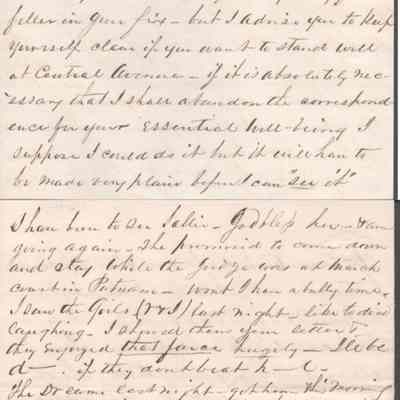 feller in your fix - but I advise you to keep
yourself clear if you want to stand well
at Central Avenue - if it is absolutely nec-
"essary that I shall abandon the correspond
ence for your essential well-being I
suppose I could do it but it will have to
be made very plain before I can "see it"
I have been to see Sallie - God bless her - & am
going again - She promised to come down
and stay while the Judge was at March
court in Putnam - wont I have a bully time,
I saw the Girls (V & I) last night - like to died
laughing - I showed them your letter &
they enjoyed that farce hugely - I'll be
d—. if they dont beat h—l-
The Dr came last night - got home this morning